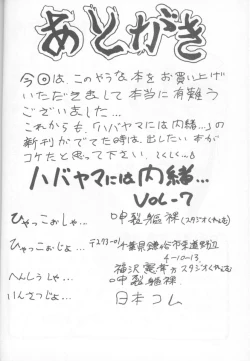 あとがき
今回は、このような本をお買い上げ
いただきまして本当に有難う
ございました…
これからも、「ハバヤマには内緒…」の
新刊がでてた時は、出したい本が
コケたと思って下さい。くくく…
ハバヤマには内緒…
VOL-7
ひゃっこおしゃ…
ひゃっこおじょ… 〒273-01 千葉県鎌ヶ谷市
4-10-13
福沢 方 スタジオ
へんしうしゃ…
いんさつじょ… 日本コム